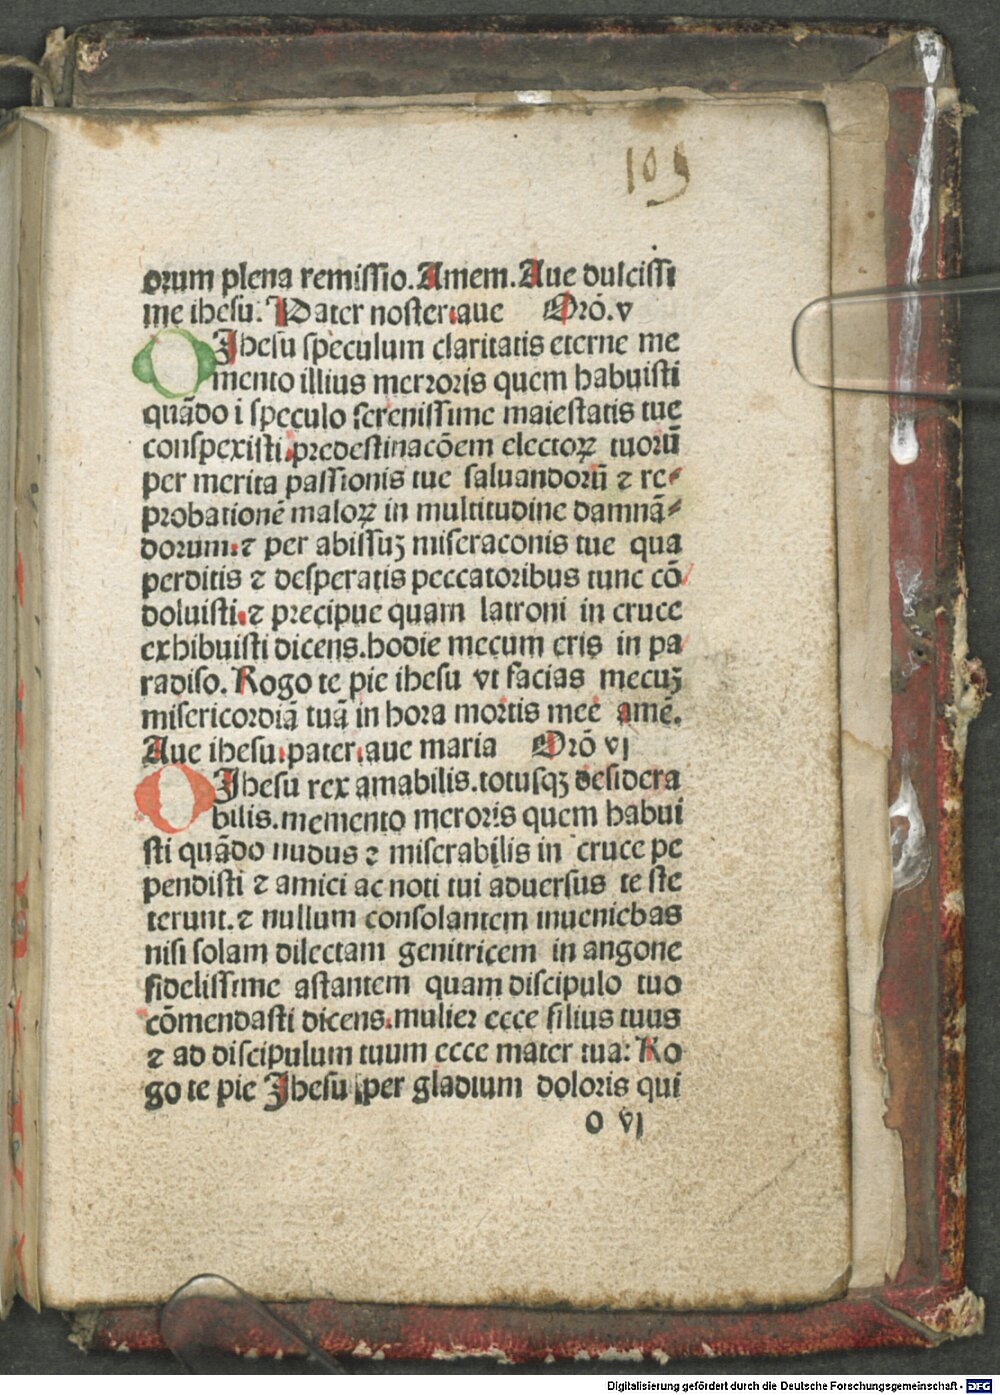 109
orum plena remissio. Amem. Aue dulcissi
me ihesu. Pater noster.aue Orō.v
O Jhesu speculum claritatis eterne me
mento illius merroris quem habuisti
quādo i speculo serenissime maiestatis tue
conspexisti.predestinacōem electoꝝ tuorū
per merita passionis tue saluandorū ⁊ re⸗
probationē maloꝝ in multitudine damnā⸗
dorum:⁊ per abissuꝫ miseraconis tue qua
perditis ⁊ desperatis peccatoribus tunc cō
doluisti.⁊ precipue quam latroni in cruce
exhibuisti dicens.hodie mecum eris in pa
radiso. Rogo te pie ihesu vt facias mecuꝫ
misericordiā tuā in hora mortis mee amē.
Aue ihesu.pater.aue maria Orō vj
O Jhesu rex amabilis.totusqꝫ desidera
bilis.memento meroris quem habui
sti quādo nudus ⁊ miserabilis in cruce pe
pendisti ⁊ amici ac noti tui aduersus te ste
terunt.⁊ nullum consolantem inueniebas
nisi solam dilectam genitricem in angone
fidelissime astantem quam discipulo tuo
cōmendasti dicens.mulier ecce filius tuus
⁊ ad discipulum tuum ecce mater tua: Ro
go te pie Jhesu per gladium doloris qui
o vj
Digitalisierung gefördert durch die Deutsche Forschungsgemeinschaft - DFG